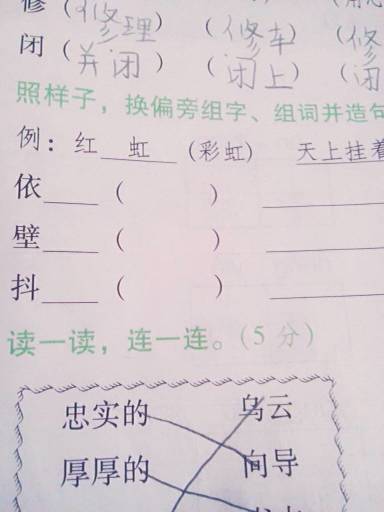 修（修理）（修车）（修
闭（关闭）（闭上）（闭
照样子，换偏旁组字、组词并造句
例：红 虹 （彩虹） 天上挂着
依____（ ）
壁____（ ）
抖____（ ）
读一读，连一连。（5分）
忠实的 乌云
厚厚的 向导